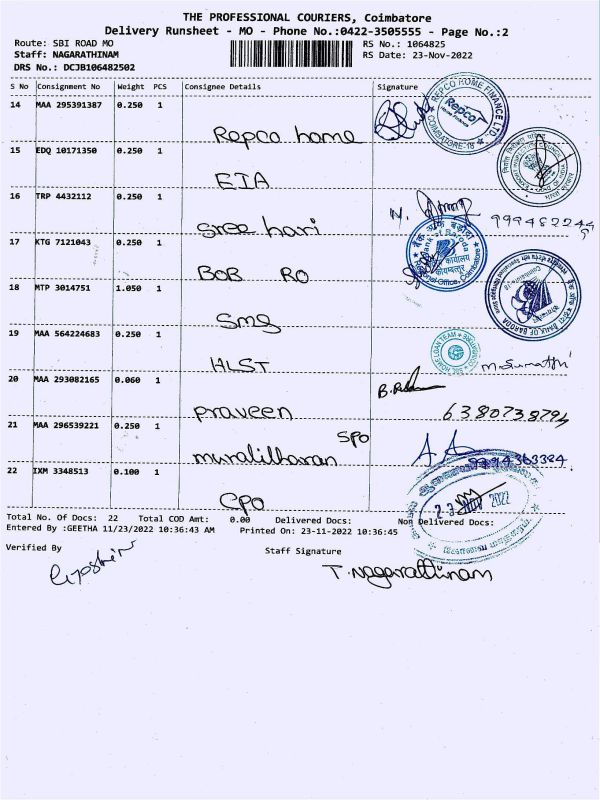 THE PROFESSIONAL COURIERS, Coimbatore
Delivery Runsheet - MO - Phone No.:0422-3505555 - Page No.:2
Route: SBI ROAD MO
RS No.: 1064825
Staff: NAGARATHINAM
RS Date: 23-Nov-2022
DRS No.: DCJB106482502
S No Consignment No Weight PCS Consignee Details Signature
14 MAA 295391387 0.250 1
Repco home
REPCO HOME FINANCE LTD.
Repco
Home Finance
COIMBATORE-18
15 EDQ 10171350 0.250 1
EIA
16 TRP 4432112 0.250 1
Sree hari
17 KTG 7121043 0.250 1
BOB RO
बैंक ऑफ बड़ौदा
Bank of Baroda
18 MTP 3014751 1.050 1
Smg
BANK OF BARODA
19 MAA 564224683 0.250 1
HLST
M.Sumathi
20 MAA 293082165 0.060 1
praveen
6380738794
21 MAA 296539221 0.250 1
SPO
muralitharan
22 IXM 3348513 0.100 1
CPO
23 NOV 2022
Total No. Of Docs: 22 Total COD Amt: 0.00 Delivered Docs: Non Delivered Docs:
Entered By :GEETHA 11/23/2022 10:36:43 AM Printed On: 23-11-2022 10:36:45
Verified By
Staff Signature
T.Nagarathinam